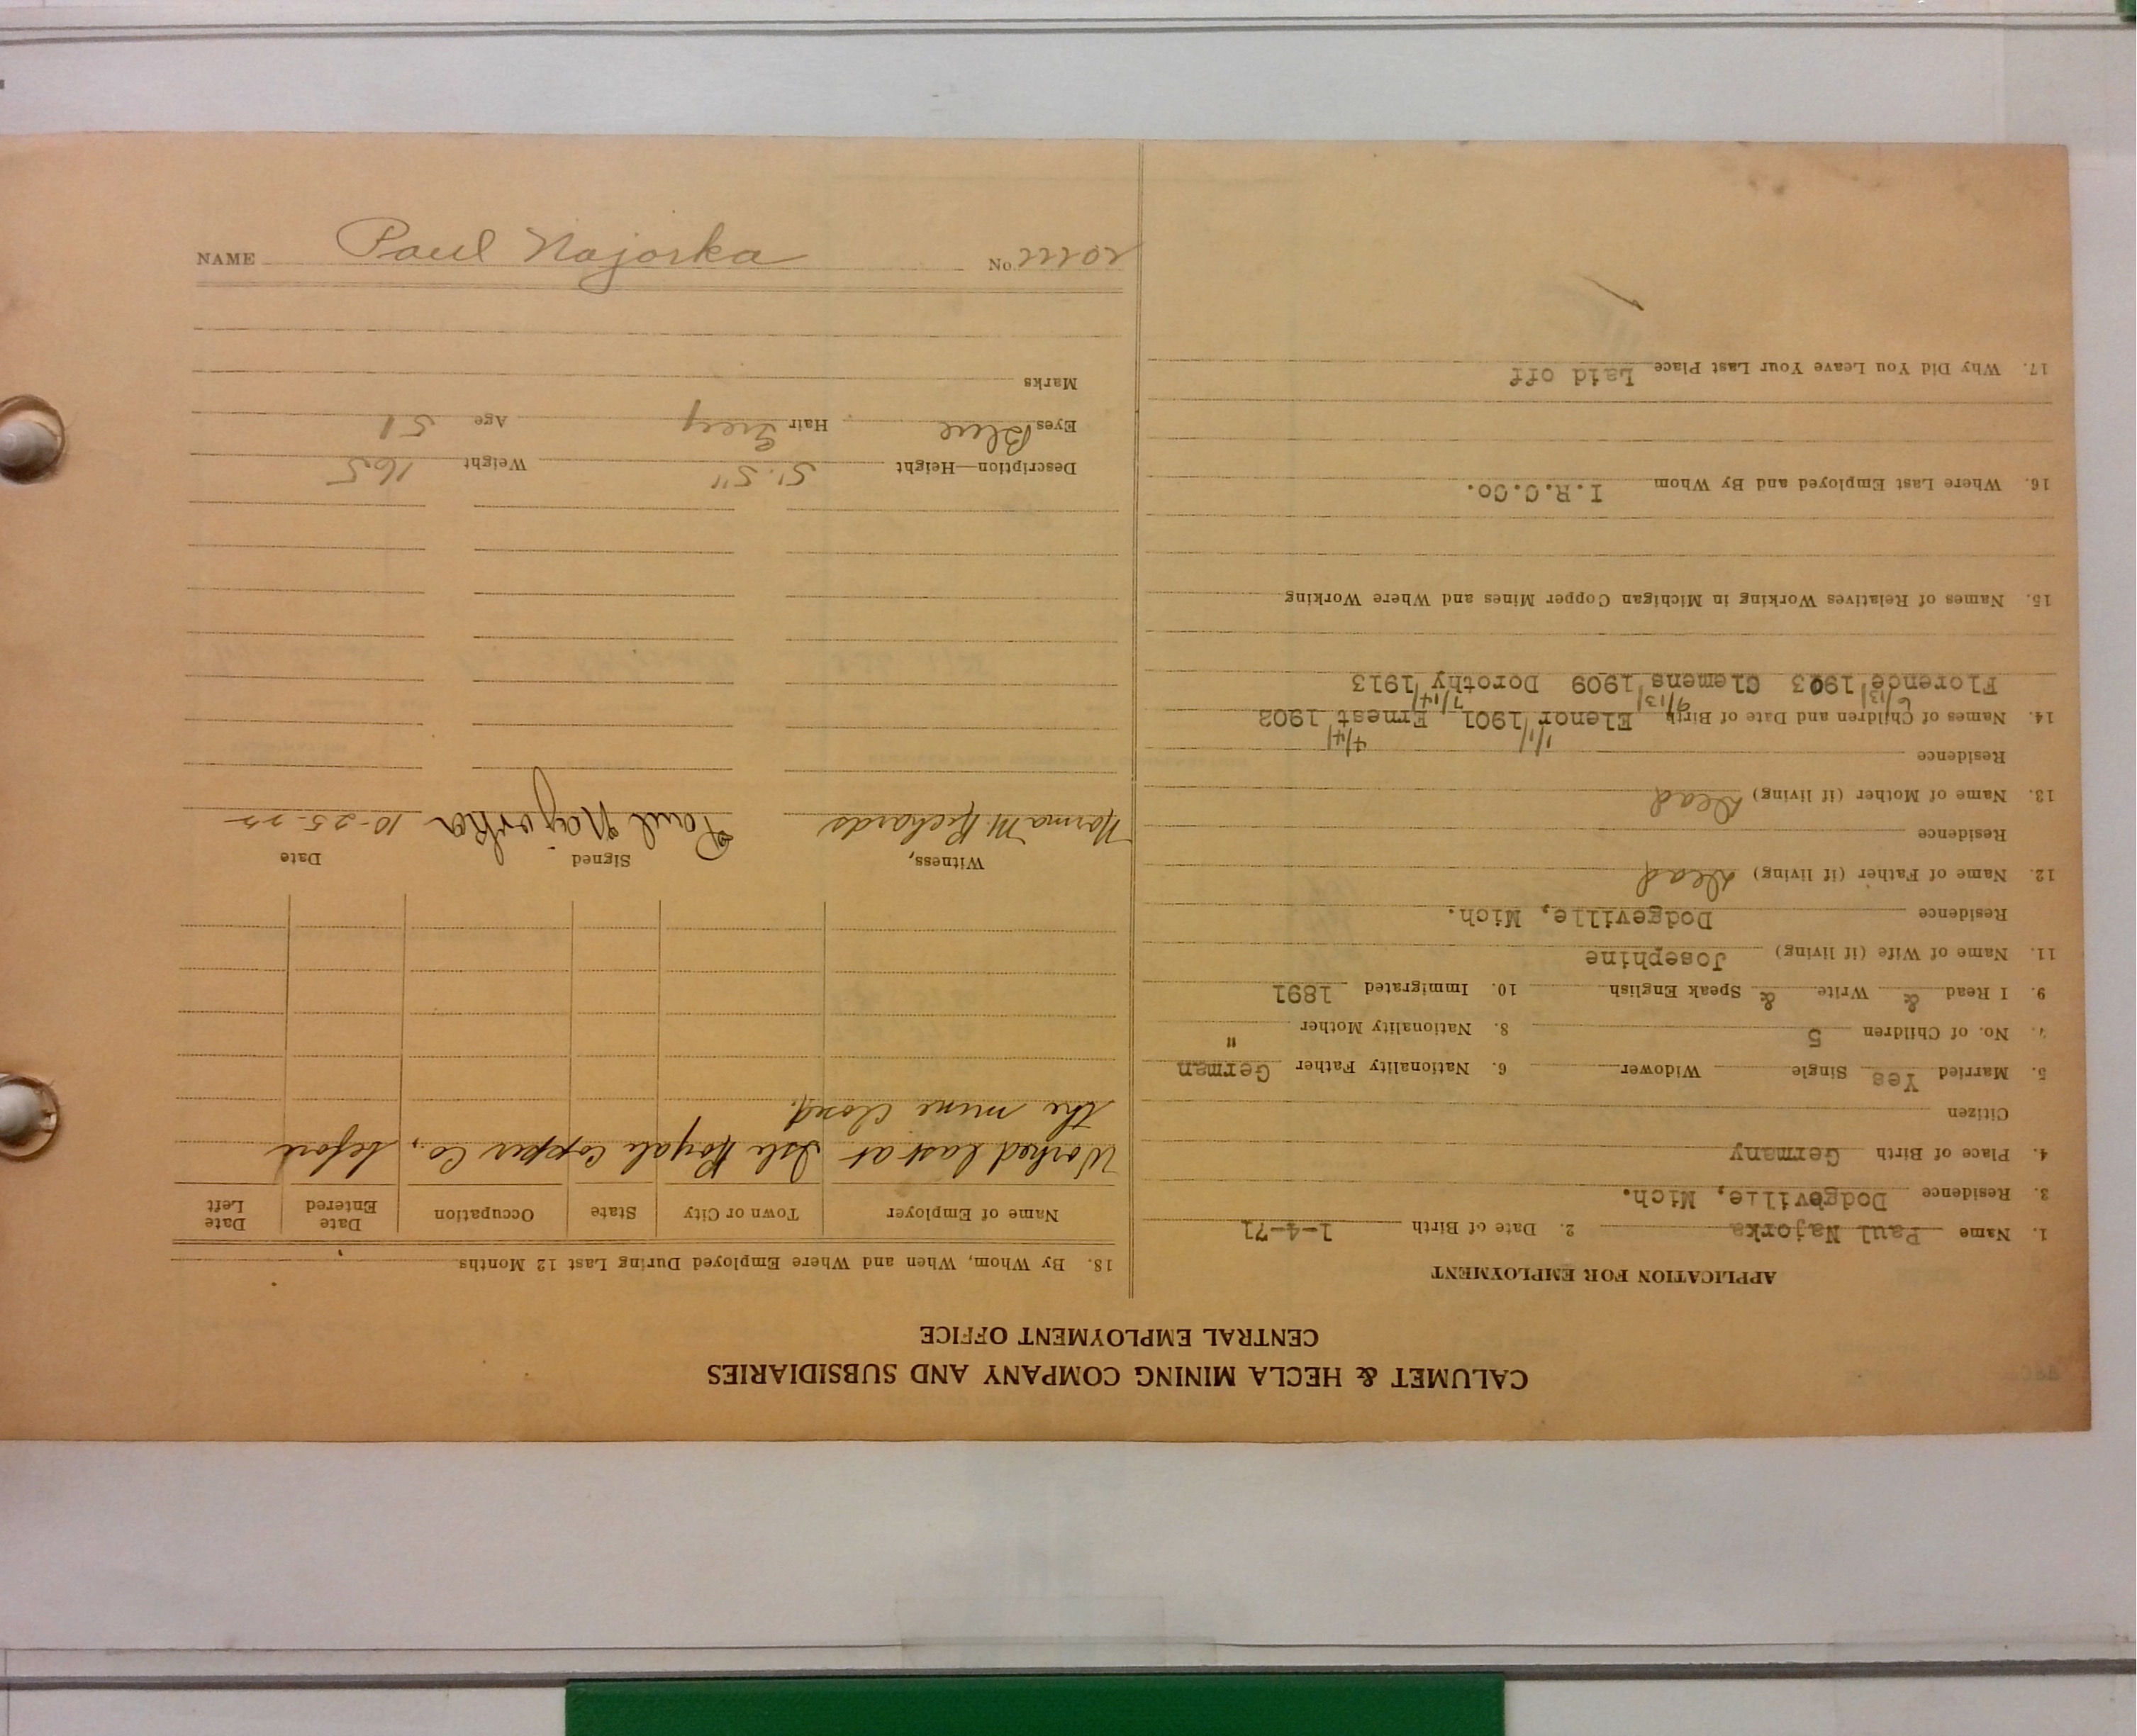 CALUMET & HECLA MINING COMPANY AND SUBSIDIARIES
CENTRAL EMPLOYMENT OFFICE
APPLICATION FOR EMPLOYMENT
1. Name Paul Najorka 2. Date of Birth 1-4-71
3. Residence Dodgeville, Mich.
4. Place of Birth Germany
Citizen
5. Married Yes Single Widower 6. Nationality Father German
7. No. of Children 5 8. Nationality Mother "
9. I Read & Write & Speak English 10. Immigrated 1891
11. Name of Wife (if living) Josephine
Residence Dodgeville, Mich.
12. Name of Father (if living) Dead
Residence
13. Name of Mother (if living) Dead
Residence
1/1/ 4/4/
14. Names of Children and Date of Birth Elenor 1901 Ernest 1902
6/13/ 9/13/ 7/14/
Florence 1903 Clemens 1909 Dorothy 1913
15. Names of Relatives Working in Michigan Copper Mines and Where Working
16. Where Last Employed and By Whom I.R.C.Co.
17. Why Did You Leave Your Last Place Laid off
18. By Whom, When and Where Employed During Last 12 Months
Name of Employer Town or City State Occupation Date Entered Date Left
Worked last at Isle Royale Copper Co., before
the mine closed.
Witness, Signed Date
Norma M. Richards Paul Najorka 10-25-22
Description—Height 5' 5" Weight 165
Eyes Blue Hair Grey Age 51
Marks
NAME Paul Najorka No.